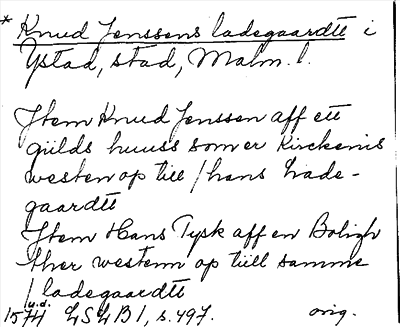 * Knud Jenssens ladegaardtt i
Ystad, stad, Malm. l.
Jtem Knud Jenssen aff ett
gilds huuss som er Kirckenis
westen op till / hans Lade-
gaardtt
Jtem Hans Tysk aff en Boligh
ther westenn op till samme
/ ladegaardtt
u.d.
1574 LSLB 1, s. 497. orig.